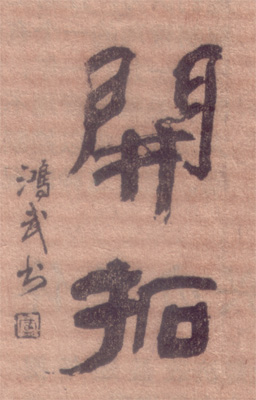 開拓
鴻武书